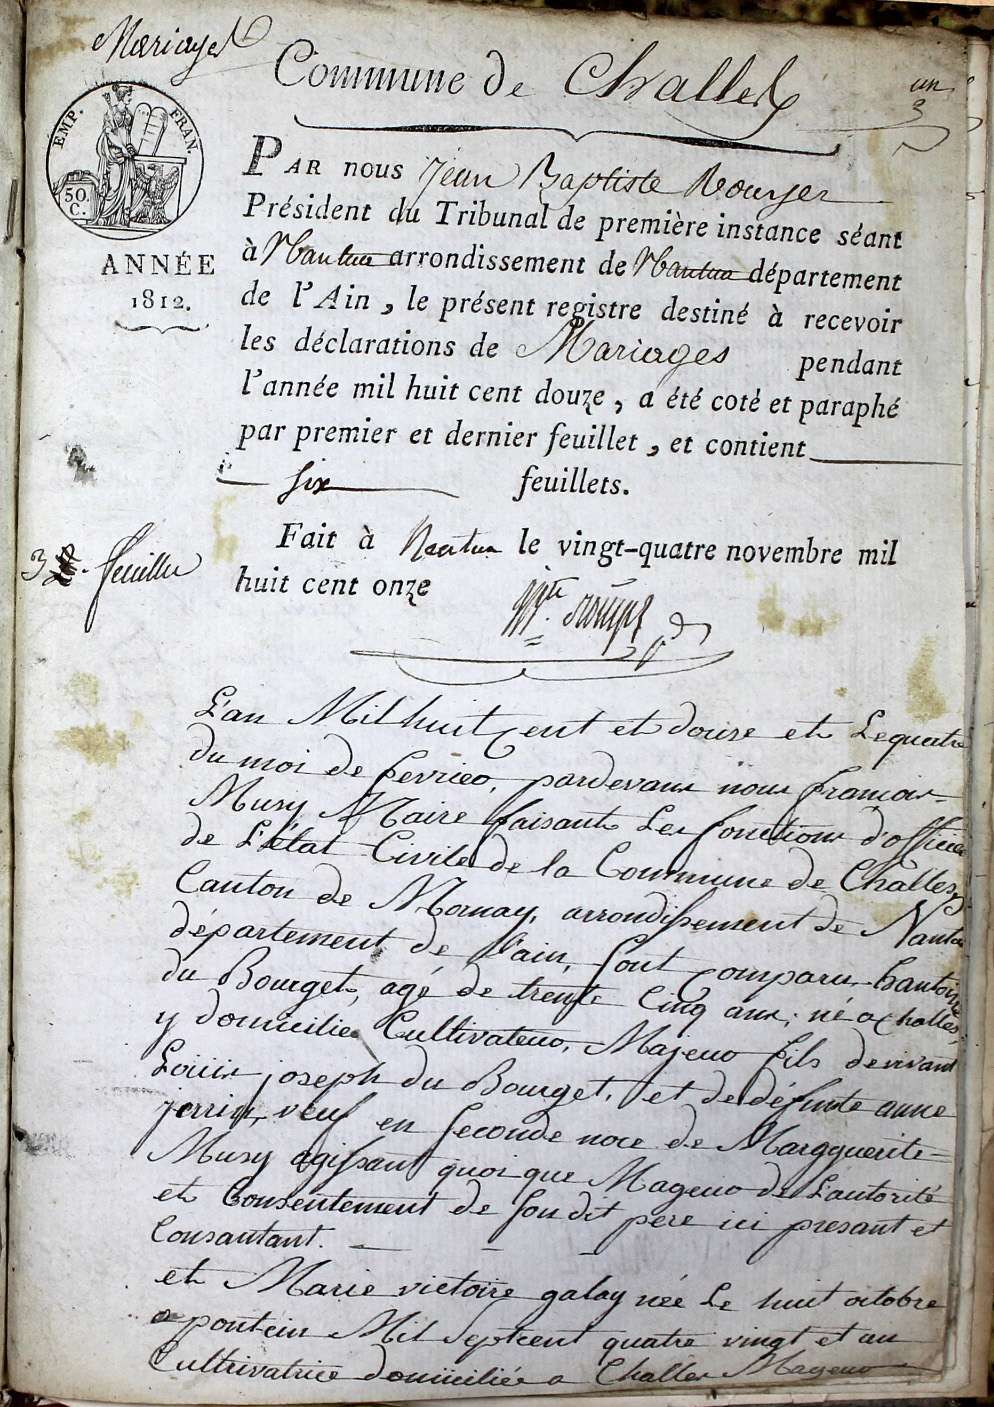 Mariages
Commune de Challes
un
3
EMP. FRAN.
50.
C.
ANNÉE
1812.
PAR nous Jean Baptiste Rouyer
Président du Tribunal de première instance séant
à Nantua arrondissement de Nantua département
de l'Ain, le présent registre destiné à recevoir
les déclarations de Mariages pendant
l'année mil huit cent douze, a été coté et paraphé
par premier et dernier feuillet, et contient
six feuillets.
3 feuillet
Fait à Nantua le vingt-quatre novembre mil
huit cent onze
L'an Mil huit Cent et douse et Le quatre
du moi de fevrier, pardevant nous françois
Musy Maire faisant Les fonctions d'officier
de L'état Civile de la Commune de Challes,
Canton de Mornay, arrondissement de Nantua
département de l'ain, sont Comparu hantoine
du Bourget, agé de trente Cinq ans, né a Challes,
y domicilie Cultivateur, Majeur fils de vivant
Louis joseph du Bourget, et de défunte anne
perrin, veuf en seconde noce de Margguerite
Musy agissant quoi que Mageur de L'autorité
et Consentement de son dit pere ici present et
Consantant.
et Marie victoire galay née Le huit octobre
a poncin Mil Septcent quatre vingt et un
Cultrivatrice domiciliée a Challes Mageur